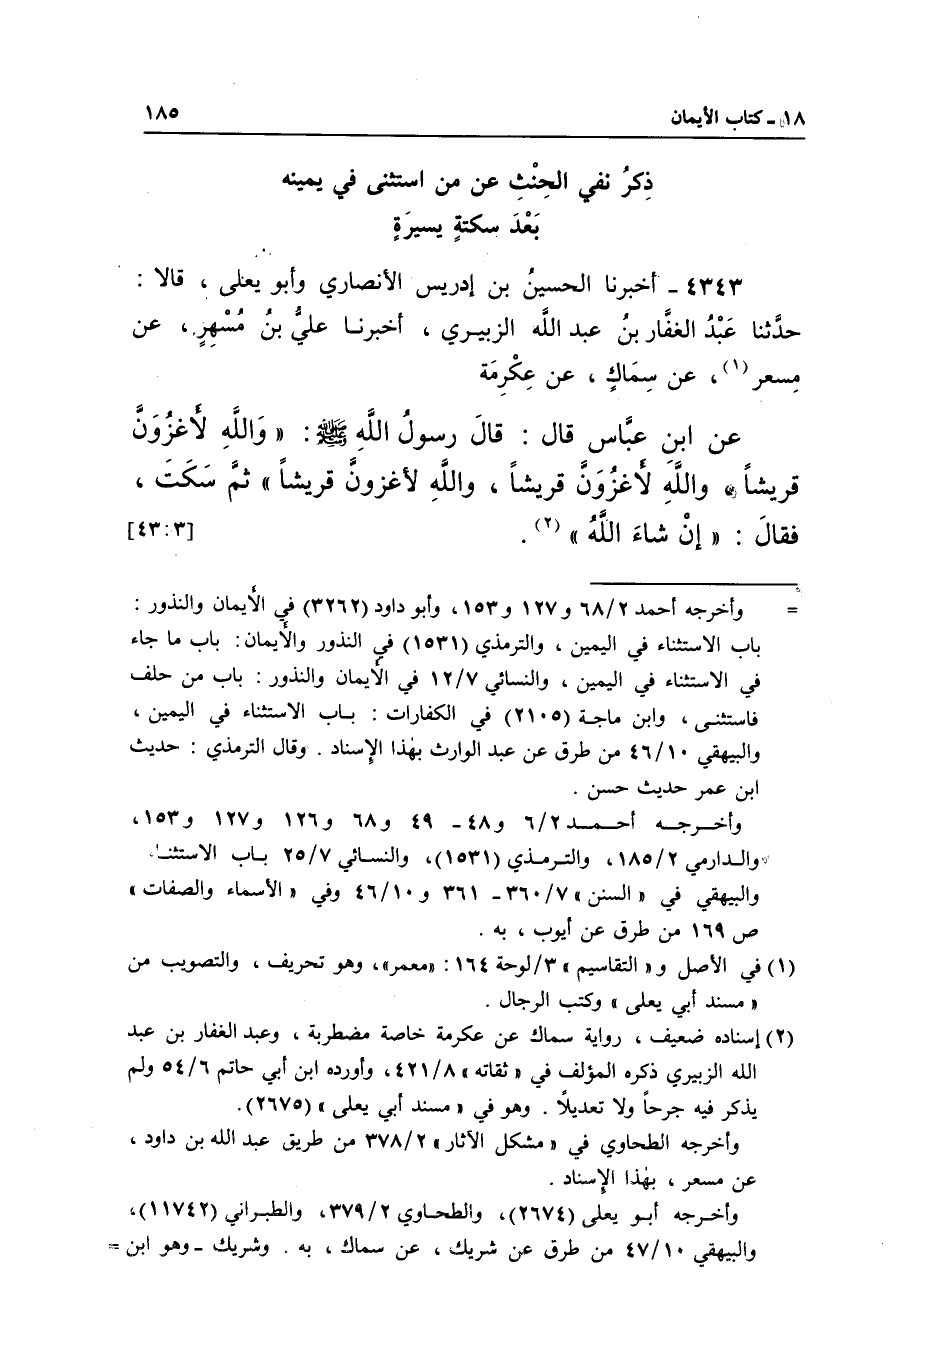 ١٨ - كتاب الأيمان ١٨٥
ذِكرُ نفي الحِنْثِ عن من استثنى في يمينه
بَعْدَ سكتةٍ يسيرَةٍ
٤٣٤٣ - أخبرنا الحسينُ بن إدريس الأنصاري وأبو يعلى ، قالا :
حدَّثنا عَبْدُ الغفَّار بنُ عبد الله الزبيري ، أخبرنا عليُّ بنُ مُسْهِرٍ ، عن
مِسعر (١) ، عن سِمَاكٍ ، عن عِكْرِمَة
عن ابن عبَّاس قال : قالَ رسولُ اللَّهِ ﷺ : « وَاللَّهِ لَأَغزُوَنَّ
قريشاً ، واللَّهِ لَأَغزُوَنَّ قريشاً ، واللَّهِ لأغزونَّ قريشاً » ثمَّ سَكَتَ ،
فقالَ : « إنْ شاءَ اللَّهُ » (٢) . [٤٣:٣]
= وأخرجه أحمد ٦٨/٢ و١٢٧ و١٥٣، وأبو داود (٣٢٦٢) في الأيمان والنذور :
باب الاستثناء في اليمين ، والترمذي (١٥٣١) في النذور والأيمان: باب ما جاء
في الاستثناء في اليمين ، والنسائي ١٢/٧ في الأيمان والنذور : باب من حلف
فاستثنى ، وابن ماجة (٢١٠٥) في الكفارات : باب الاستثناء في اليمين ،
والبيهقي ٤٦/١٠ من طرق عن عبد الوارث بهٰذا الإسناد . وقال الترمذي : حديث
ابن عمر حديث حسن .
وأخرجه أحمد ٦/٢ و٤٨ - ٤٩ و٦٨ و١٢٦ و١٢٧ و١٥٣،
والدارمي ١٨٥/٢، والترمذي (١٥٣١)، والنسائي ٢٥/٧ باب الاستثناء،
والبيهقي في « السنن » ٣٦٠/٧ - ٣٦١ و٤٦/١٠ وفي « الأسماء والصفات »
ص ١٦٩ من طرق عن أيوب ، به .
(١) في الأصل و« التقاسيم » ٣/لوحة ١٦٤ : «معمر»، وهو تحريف ، والتصويب من
« مسند أبي يعلى » وكتب الرجال .
(٢) إسناده ضعيف ، رواية سماك عن عكرمة خاصة مضطربة ، وعبد الغفار بن عبد
الله الزبيري ذكره المؤلف في « ثقاته » ٤٢١/٨، وأورده ابن أبي حاتم ٥٤/٦ ولم
يذكر فيه جرحاً ولا تعديلاً . وهو في « مسند أبي يعلى » (٢٦٧٥).
وأخرجه الطحاوي في « مشكل الآثار » ٣٧٨/٢ من طريق عبد الله بن داود ،
عن مسعر ، بهٰذا الإسناد .
وأخرجه أبو يعلى (٢٦٧٤)، والطحاوي ٣٧٩/٢، والطبراني (١١٧٤٢)،
والبيهقي ٤٧/١٠ من طرق عن شريك ، عن سماك ، به . وشريك - وهو ابن =